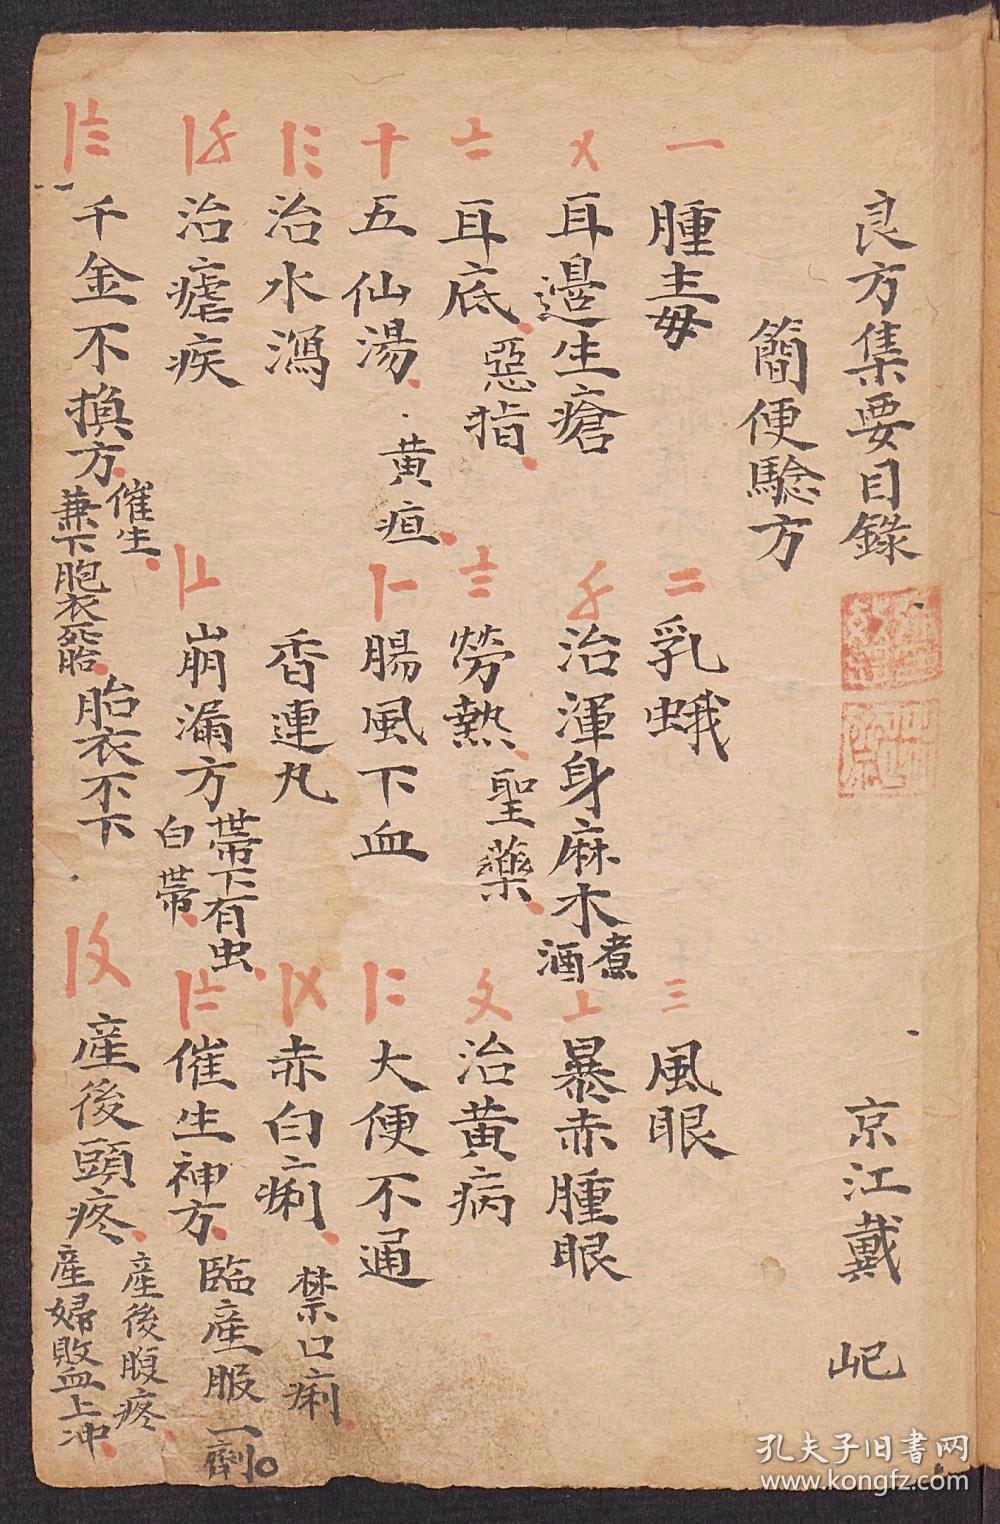 良方集要目錄 京江戴 屺
簡便驗方
一 腫毒 二 乳蛾 三 風眼
〤 耳邊生瘡 〥 治渾身麻木 煮酒 〦 暴赤腫眼
〧 耳底 惡指 〨 勞熱 聖藥 〩 治黄病
十 五仙湯 黄疸 〡一 腸風下血 〡二 大便不通
〡三 治水瀉 香連丸 〡〤 赤白痢 禁口痢
〡〥 治瘧疾 〡〦 崩漏方 帶下有虫 白帶 〡〧 催生神方 臨產服一劑
〡〨 千金不換方 催生 兼下胞衣死胎 胎衣不下 〡〩 產後頭疼 產後腹疼 產婦敗血上冲
孔夫子旧書网
www.kongfz.com